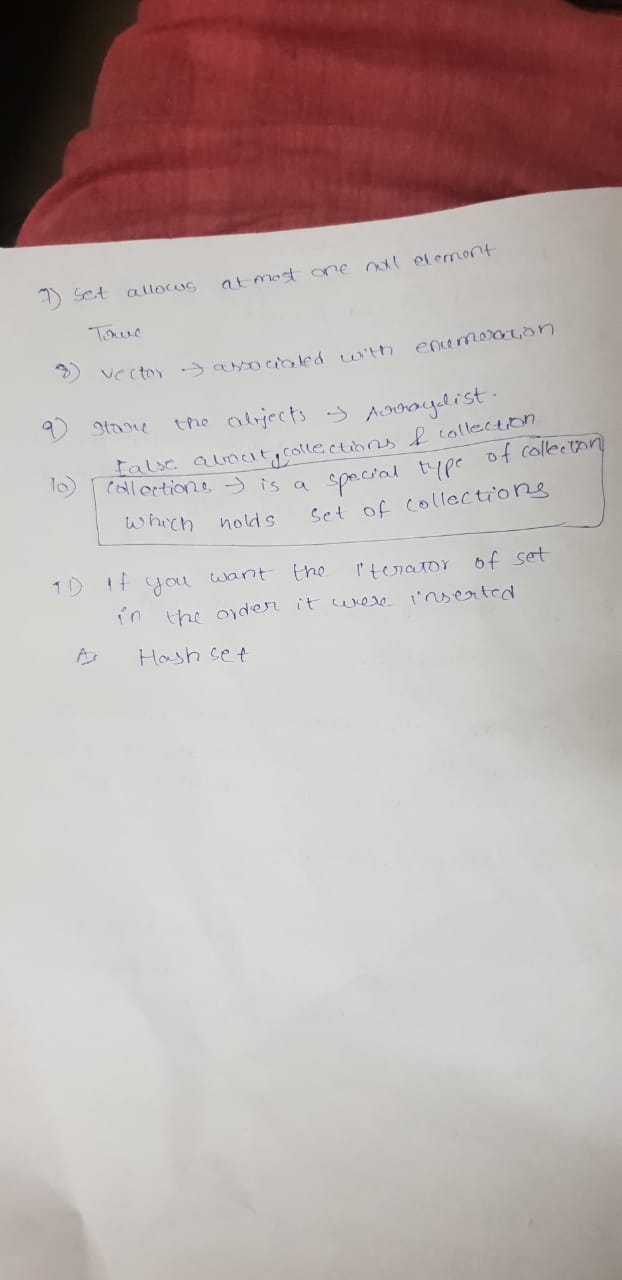 7) Set allows atmost one null element
True
8) vector → associated with enumeration
9) Store the objects → Arraylist.
False about collections & collection
10) Collections → is a special type of collection
which holds set of collections
11) If you want the iterator of set
in the order it were inserted
A: Hash set